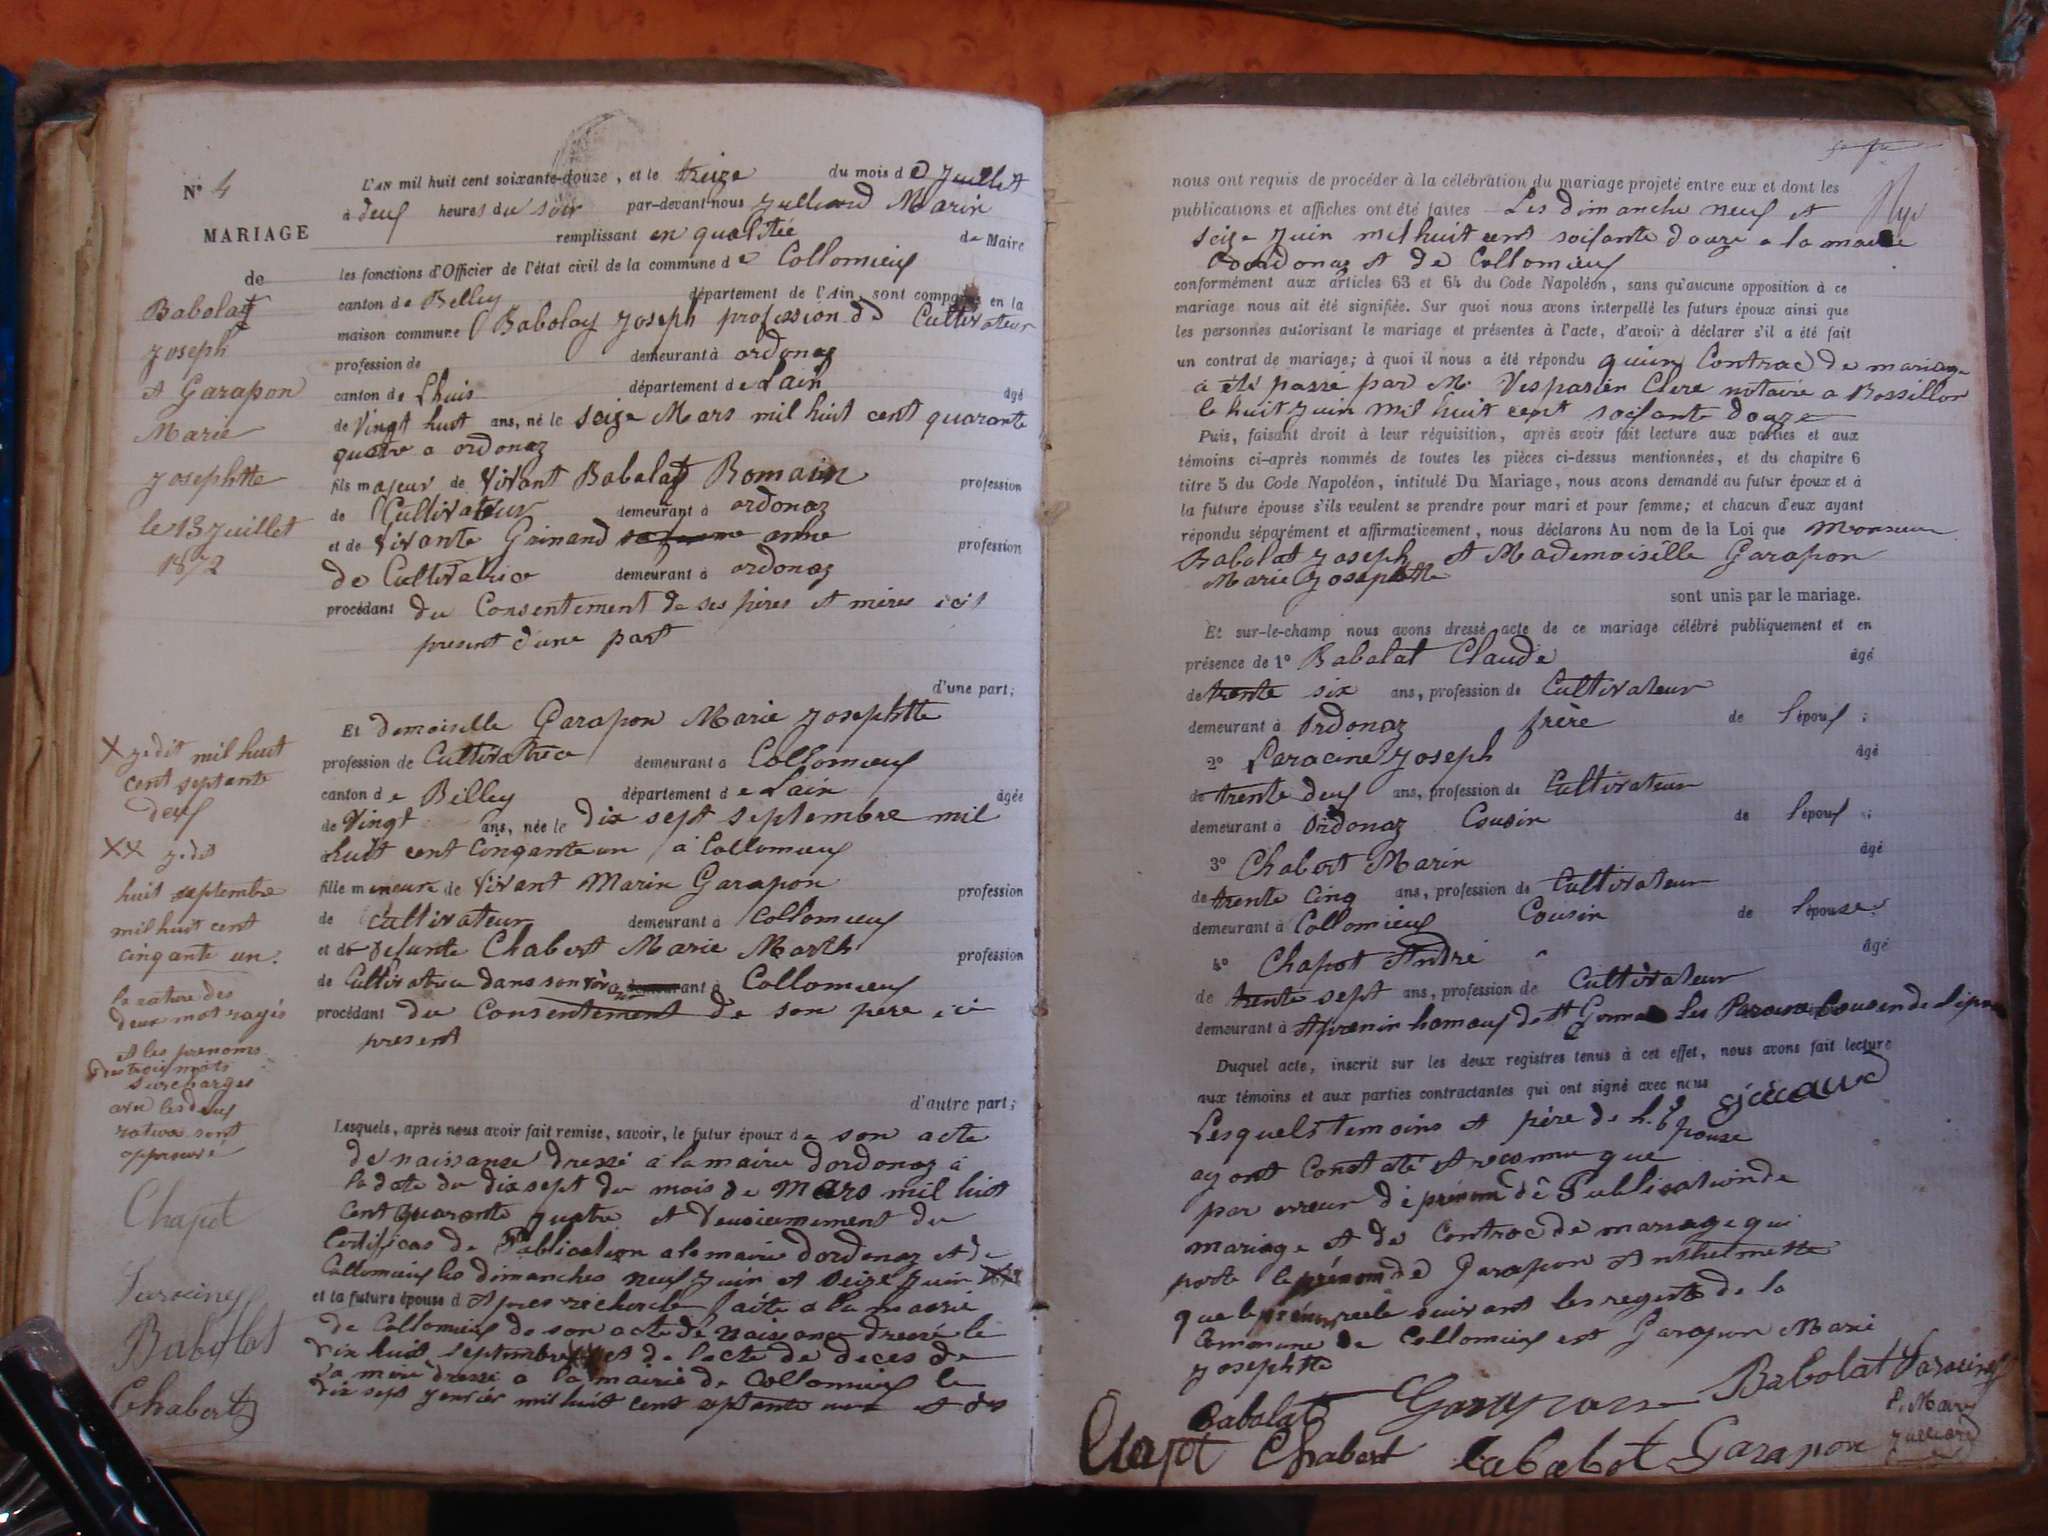 N° 4
MARIAGE
de
Babolat
Joseph
et Garapon
Marie
Josephtte
le 13 Juillet
1872
L'AN mil huit cent soixante-douze, et le treize du mois de Juillet
à deux heures du soir par-devant nous Julliand Marin
remplissant en qualitée de Maire
les fonctions d'Officier de l'état civil de la commune de Collomieux
canton de Belley département de l'Ain, sont comparus en la
maison commune Babolat Joseph profession de Cultivateur
profession de demeurant à ordonaz
canton de Lhuis département de Lain âgé
de Vingt huit ans, né le seize Mars mil huit cent quarante
quatre a ordonaz
fils majeur de vivant Babolat Romain profession
de Cultivateur demeurant à ordonaz
et de vivante Grinand anne profession
de Cultivatrice demeurant à ordonaz
procédant du Consentement de ses pères et mères ici
present d'une part
d'une part;
Et demoiselle Garapon Marie Josephtte
profession de Cultivatrice demeurant à Collomieux
canton de Belley département de Lain âgée
de Vingt ans, née le dix sept septembre mil
huit cent cinqante un à Collomieux
fille mineure de vivant Marin Garapon profession
de cultivateur demeurant à Collomieux
et de defunte Chabert Marie Marth profession
de Cultivatrice dans son vivant demeurant à Collomieux
procédant du Consentement de son père ici
present
d'autre part;
Lesquels, après nous avoir fait remise, savoir, le futur époux de son acte
de naissanse dressé à la mairie dordonaz à
la date du dix sept du mois de Mars mil huit
cent quarante quatre et deusiemement du
Certificas de Publication a la mairie dordonaz et de
Collomieux les dimanches neuf Juin et seize Juin
et la future épouse d Apres recherche faite a la mairie
de Collomieux de son acte de Naissance dressé le
dix huit septembre et de lacte de deces de
sa mère dressé a la mairie de Collomieux le
dix sept Jenvier mil huit cent septante
X Je dit mil huit
cent septante
deux
XX Je dit
huit septembre
mil huit cent
cinqante un.
la rature des
deux mot rayés
et les prenoms
des trois mots
surcharges
sont
approuvé
Chapot
Laracine
Babolat
Chabert
nous ont requis de procéder à la célébration du mariage projeté entre eux et dont les
publications et affiches ont été faites Les dimanche neuf et
seize Juin mil huit cent soisante douze a la mairie
dordonaz et de Collomieux
conformément aux articles 63 et 64 du Code Napoléon, sans qu'aucune opposition à ce
mariage nous ait été signifiée. Sur quoi nous avons interpellé les futurs époux ainsi que
les personnes autorisant le mariage et présentes à l'acte, d'avoir à déclarer s'il a été fait
un contrat de mariage; à quoi il nous a été répondu quun Contrac de mariage
a été passé par Me Vespasien Clerc notaire a Rossillon
le huit Juin mil huit cent soisante douze
Puis, faisant droit à leur réquisition, après avoir fait lecture aux parties et aux
témoins ci-après nommés de toutes les pièces ci-dessus mentionnées, et du chapitre 6
titre 5 du Code Napoléon, intitulé Du Mariage, nous avons demandé au futur époux et à
la future épouse s'ils veulent se prendre pour mari et pour femme; et chacun d'eux ayant
répondu séparément et affirmativement, nous déclarons Au nom de la Loi que Monsieur
Babolat Joseph et Mademoiselle Garapon
Marie Josephtte
sont unis par le mariage.
Et sur-le-champ nous avons dressé acte de ce mariage célébré publiquement et en
présence de 1° Babolat Claude âgé
de trente six ans, profession de Cultivateur
demeurant à Ordonaz frère de l'époux;
2° Laracine Joseph âgé
de trente deux ans, profession de Cultivateur
demeurant à Ordonaz Cousin de l'époux;
3° Chabert Marin âgé
de trente cinq ans, profession de Cultivateur
demeurant à Collomieux Cousin de l'épouse.
4° Chapot André âgé
de trente sept ans, profession de Cultivateur
demeurant à de St Les Paroisse Cousin de l'épouse
Duquel acte, inscrit sur les deux registres tenus à cet effet, nous avons fait lecture
aux témoins et aux parties contractantes qui ont signé avec nous
Lesquels temoins et père de l'épouse
ayont Constaté et reconnu que
par erreur de prénom de Publication de
mariage et de Controc de mariage qui
porte le prénom de Garapon Anthelmette
que le prénom reele suivant les registre de la
Commune de Collomieux est Garapon Marie
Josephtte
Babolat Garapon Babolat Laracine
Chapot Chabert Babolat Garapon
Julliand